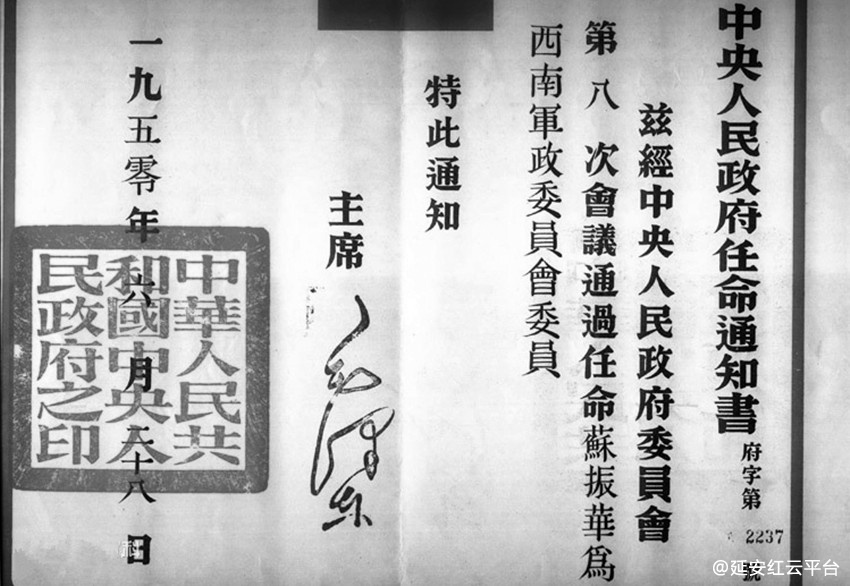 中央人民政府任命通知書
府字第 2237 號
茲經中央人民政府委員會
第八次會議通過任命蘇振華為
西南軍政委員會委員
特此通知
主席 毛澤東
一九五零年六月二十八日
中華人民共
和國中央人
民政府之印
@延安红云平台